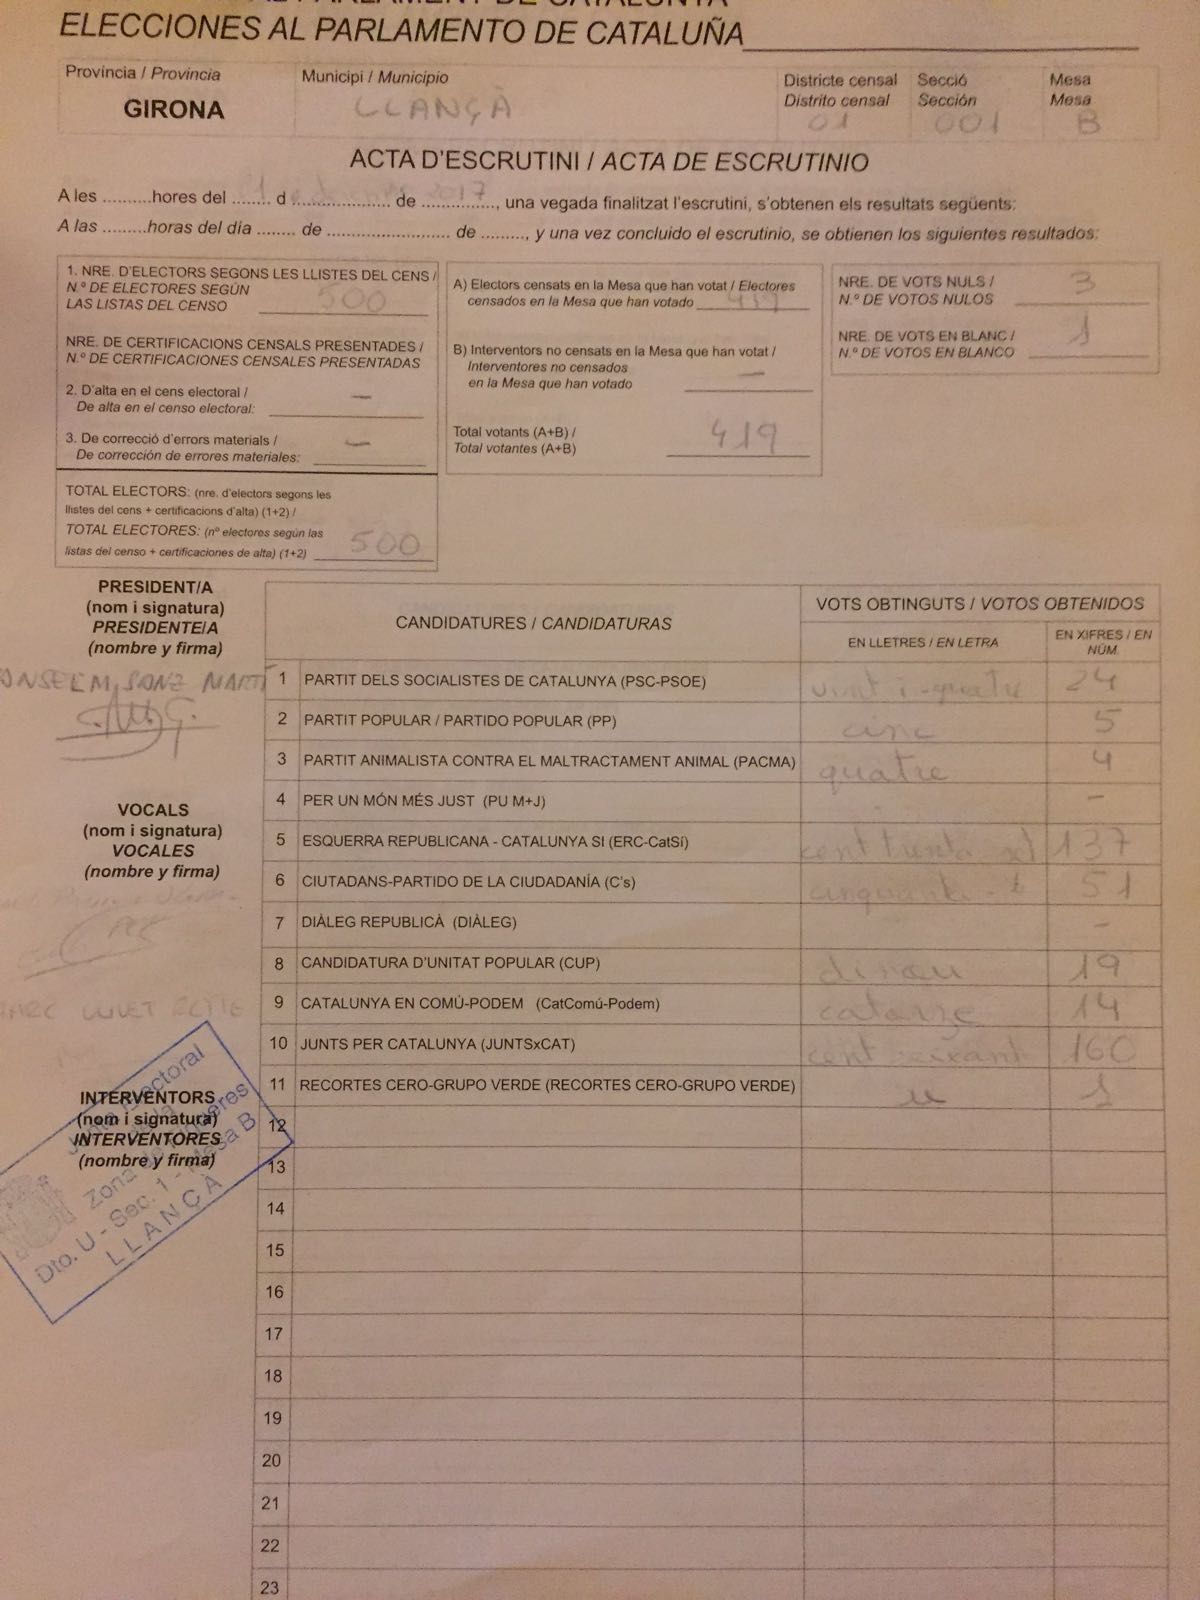 ELECCIONES AL PARLAMENTO DE CATALUÑA
Província / Provincia
GIRONA
Municipi / Municipio
LLANÇÀ
Districte censal
Distrito censal
01
Secció
Sección
001
Mesa
Mesa
B
ACTA D'ESCRUTINI / ACTA DE ESCRUTINIO
A les ..........hores del ........ d ..................... de ..............., una vegada finalitzat l'escrutini, s'obtenen els resultats següents:
2017
A las .........horas del día ........ de ......................... de ........., y una vez concluido el escrutinio, se obtienen los siguientes resultados:
1. NRE. D'ELECTORS SEGONS LES LLISTES DEL CENS /
N.º DE ELECTORES SEGÚN
LAS LISTAS DEL CENSO 500
NRE. DE CERTIFICACIONS CENSALS PRESENTADES /
N.º DE CERTIFICACIONES CENSALES PRESENTADAS
2. D'alta en el cens electoral /
De alta en el censo electoral: –
3. De correcció d'errors materials /
De corrección de errores materiales: –
TOTAL ELECTORS: (nre. d'electors segons les
llistes del cens + certificacions d'alta) (1+2) /
TOTAL ELECTORES: (nº electores según las
listas del censo + certificaciones de alta) (1+2) 500
A) Electors censats en la Mesa que han votat / Electores
censados en la Mesa que han votado 419
B) Interventors no censats en la Mesa que han votat /
Interventores no censados
en la Mesa que han votado –
Total votants (A+B) /
Total votantes (A+B) 419
NRE. DE VOTS NULS /
N.º DE VOTOS NULOS 3
NRE. DE VOTS EN BLANC /
N.º DE VOTOS EN BLANCO 1
PRESIDENT/A
(nom i signatura)
PRESIDENTE/A
(nombre y firma)
ANSELM SANZ MARTÍ
VOCALS
(nom i signatura)
VOCALES
(nombre y firma)
INTERVENTORS
(nom i signatura)
INTERVENTORES
(nombre y firma)
Junta Electoral
de la
Zona de Figueres
Dto. U - Sec. 1 - Mesa B
LLANÇÀ
CANDIDATURES / CANDIDATURAS
VOTS OBTINGUTS / VOTOS OBTENIDOS
EN LLETRES / EN LETRA
EN XIFRES / EN
NÚM.
1 PARTIT DELS SOCIALISTES DE CATALUNYA (PSC-PSOE) vint i quatre 24
2 PARTIT POPULAR / PARTIDO POPULAR (PP) cinc 5
3 PARTIT ANIMALISTA CONTRA EL MALTRACTAMENT ANIMAL (PACMA) quatre 4
4 PER UN MÓN MÉS JUST (PU M+J) –
5 ESQUERRA REPUBLICANA - CATALUNYA SI (ERC-CatSí) cent trenta set 137
6 CIUTADANS-PARTIDO DE LA CIUDADANÍA (C's) cinquanta 51
7 DIÀLEG REPUBLICÀ (DIÀLEG) –
8 CANDIDATURA D'UNITAT POPULAR (CUP) dinou 19
9 CATALUNYA EN COMÚ-PODEM (CatComú-Podem) catorze 14
10 JUNTS PER CATALUNYA (JUNTSxCAT) cent xixant 160
11 RECORTES CERO-GRUPO VERDE (RECORTES CERO-GRUPO VERDE) u 1
12
13
14
15
16
17
18
19
20
21
22
23